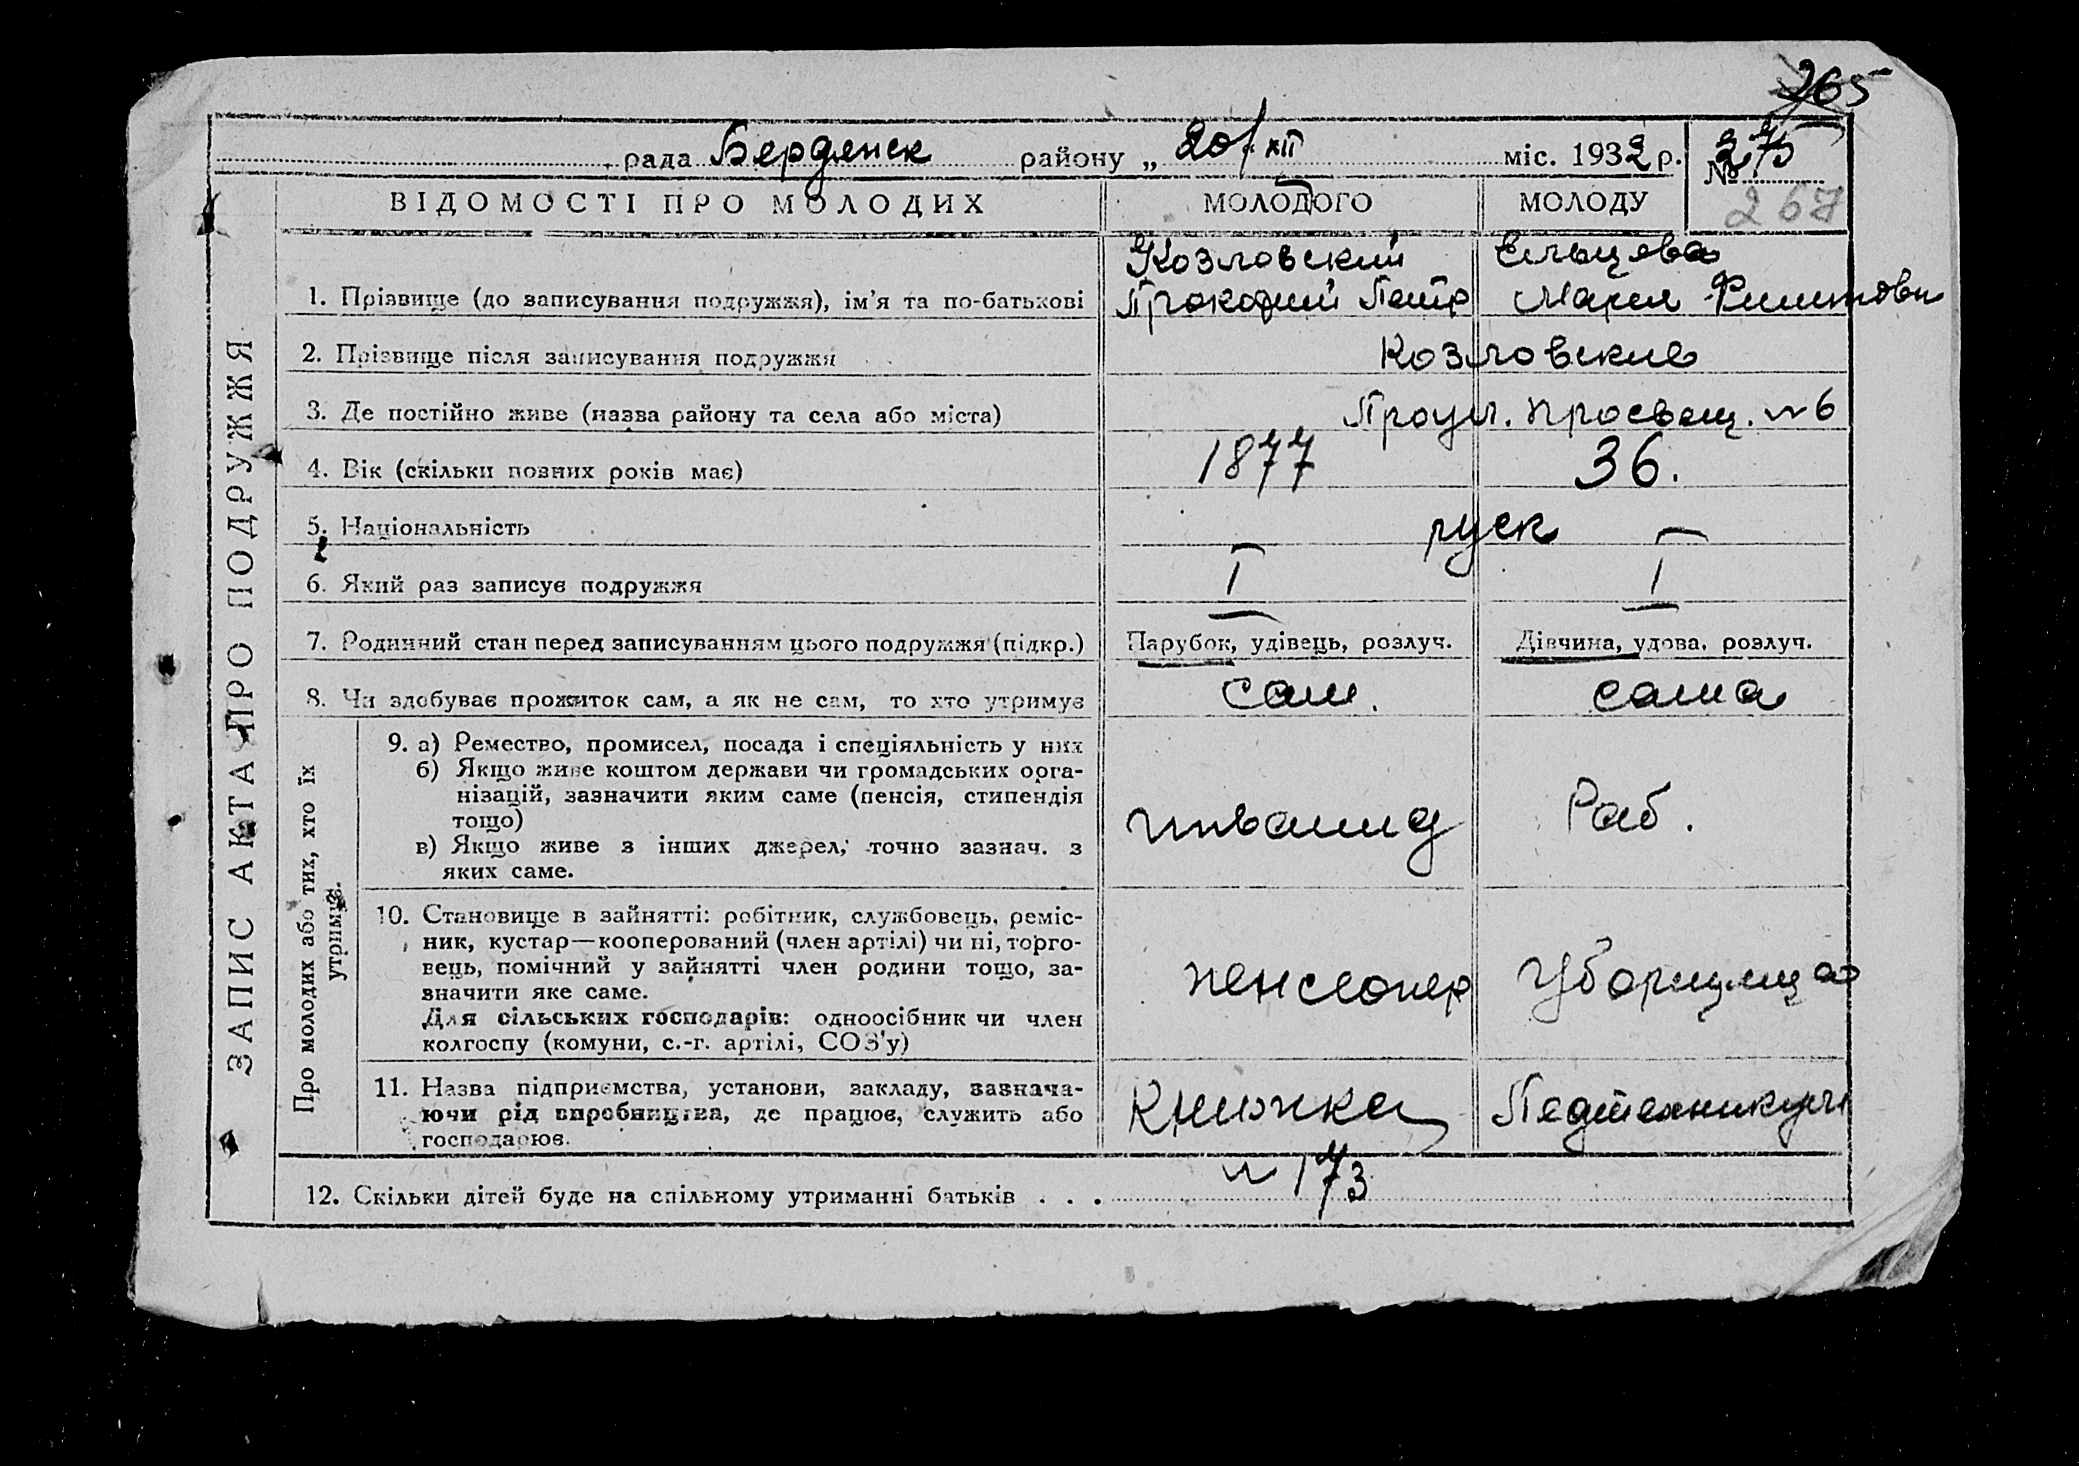 265
рада Бердянск району „ 20/XII міс. 1932 р. № 275
267
ЗАПИС АКТА ПРО ПОДРУЖЖЯ
ВІДОМОСТІ ПРО МОЛОДИХ МОЛОДОГО МОЛОДУ
Козловский Ельцова
1. Прізвище (до записування подружжя), ім'я та по-батькові Прокофий Петр Мария Филиповн
2. Прізвище після записування подружжя Козловские
3. Де постійно живе (назва району та села або міста) Проул. Просвещ. № 6
4. Вік (скільки повних років має) 1877 36.
5. Національність руск
6. Який раз записує подружжя I I
7. Родинний стан перед записуванням цього подружжя (підкр.) Парубок, удівець, розлуч. Дівчина, удова, розлуч.
8. Чи здобуває прожиток сам, а як не сам, то хто утримує сам. сама
Про молодих або тих, хто їх утримує.
9. а) Ремество, промисел, посада і спеціяльність у них
б) Якщо живе коштом держави чи громадських орга-
нізацій, зазначити яким саме (пенсія, стипендія
тощо)
в) Якщо живе з інших джерел, точно зазнач. з
яких саме.
инвалид Раб.
10. Становище в зайнятті: робітник, службовець, реміс-
ник, кустар—кооперований (член артілі) чи ні, торго-
вець, помічний у зайнятті член родини тощо, за-
значити яке саме.
Для сільських господарів: одноосібник чи член
колгоспу (комуни, с.-г. артілі, СОЗ'у)
пенсионер Уборщица
11. Назва підприємства, установи, закладу, зазнача-
ючи рід виробництва, де працює, служить або
господарює.
Книжка Педтехникум
№ 173
12. Скільки дітей буде на спільному утриманні батьків . . .